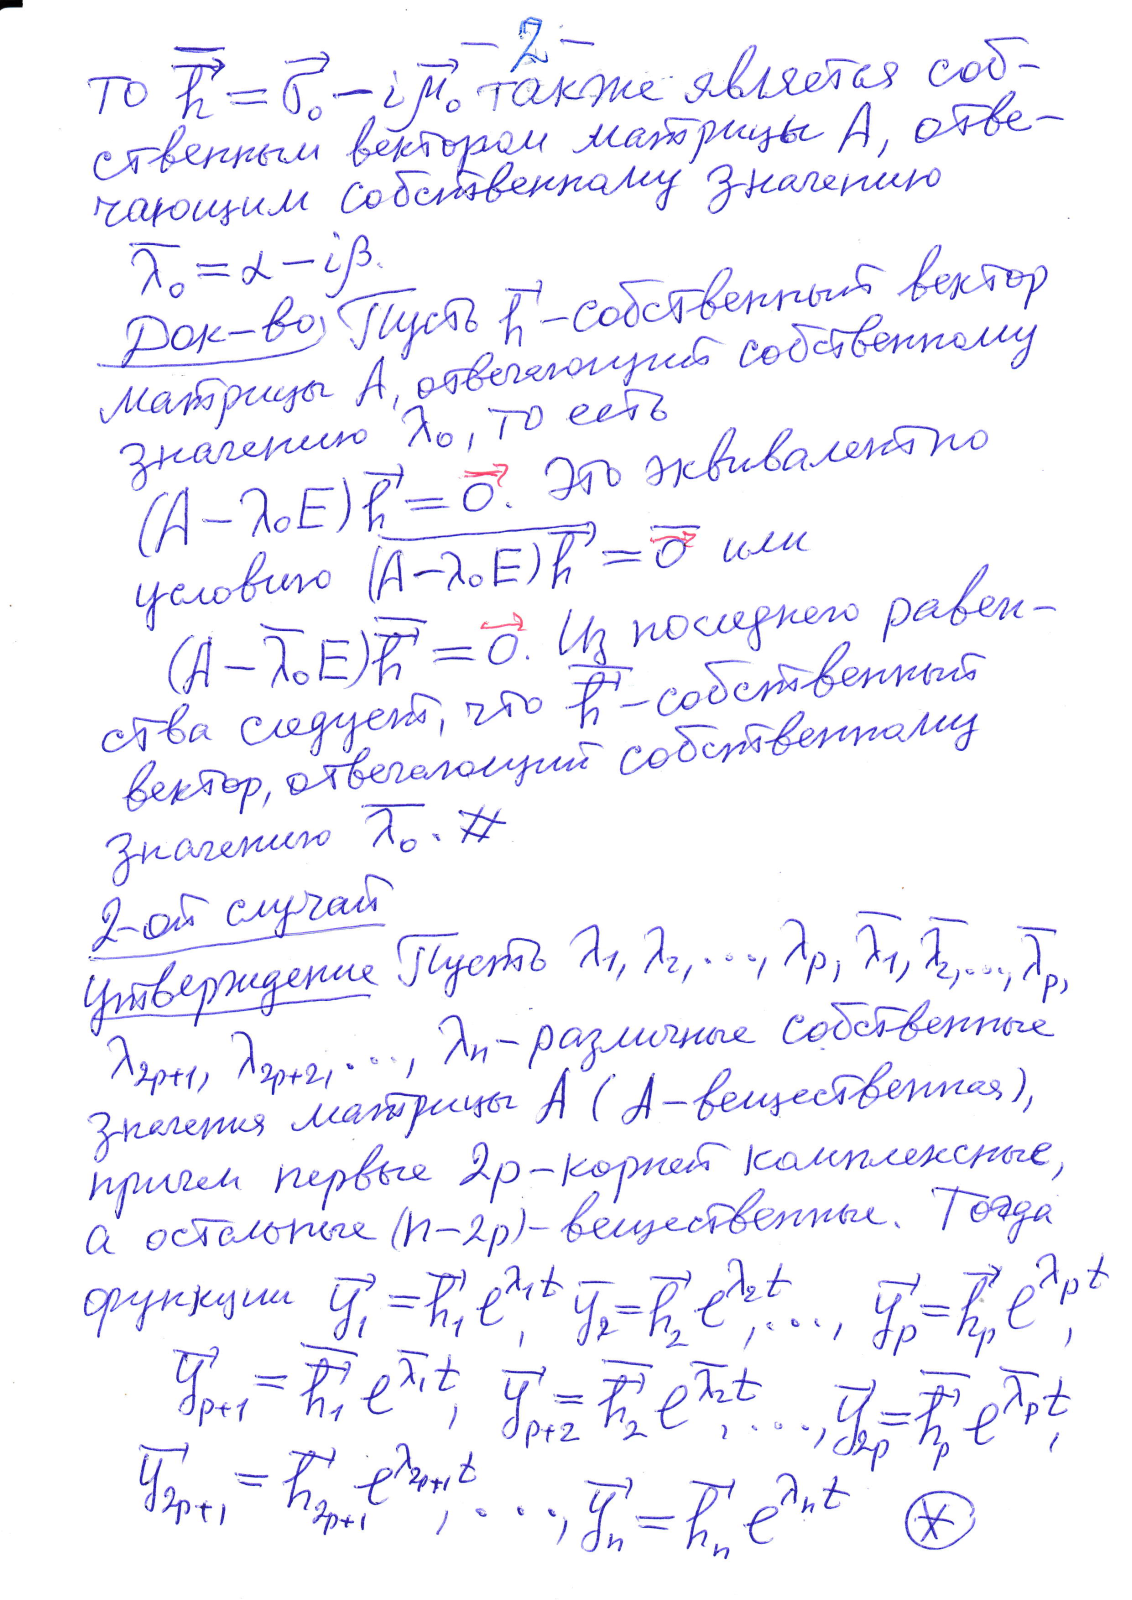 - 2 -
то \overline{\vec{h}} = \vec{σ}₀ – i\vec{μ}₀ также является соб-
ственным вектором матрицы A, отве-
чающим собственному значению
\overline{λ}₀ = α – iβ.
Док-во) Пусть \vec{h} – собственный вектор
матрицы A, отвечающий собственному
значению λ₀, то есть
(A – λ₀E)\vec{h} = \vec{0}. Это эквивалентно
условию \overline{(A – λ₀E)\vec{h}} = \overline{\vec{0}} или
(A – \overline{λ}₀E)\overline{\vec{h}} = \vec{0}. Из последнего равен-
ства следует, что \overline{\vec{h}} – собственный
вектор, отвечающий собственному
значению \overline{λ}₀. #
2-ой случай
Утверждение Пусть λ₁, λ₂, ..., λₚ, \overline{λ}₁, \overline{λ}₂, ..., \overline{λ}ₚ,
λ_{2p+1}, λ_{2p+2}, ..., λₙ – различные собственные
значения матрицы A (A – вещественная),
причем первые 2p – корней комплексные,
а остальные (n – 2p) – вещественные. Тогда
функции \vec{y}₁ = \vec{h}₁e^{λ₁t}, \overline{y}₂ = \vec{h}₂e^{λ₂t}, ..., \vec{y}ₚ = \vec{h}ₚe^{λₚt},
\vec{y}_{p+1} = \overline{\vec{h}}₁e^{\overline{λ}₁t}, \vec{y}_{p+2} = \overline{\vec{h}}₂e^{\overline{λ}₂t}, ..., \vec{y}_{2p} = \overline{\vec{h}}ₚe^{\overline{λ}ₚt},
\vec{y}_{2p+1} = \vec{h}_{2p+1}e^{λ_{2p+1}t}, ..., \vec{y}ₙ = \vec{h}ₙe^{λₙt} (*)